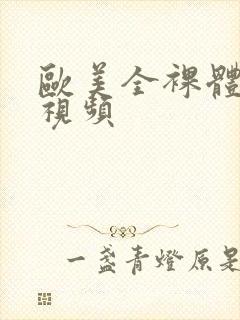 歐美全裸體
視頻
一盞青燈原是